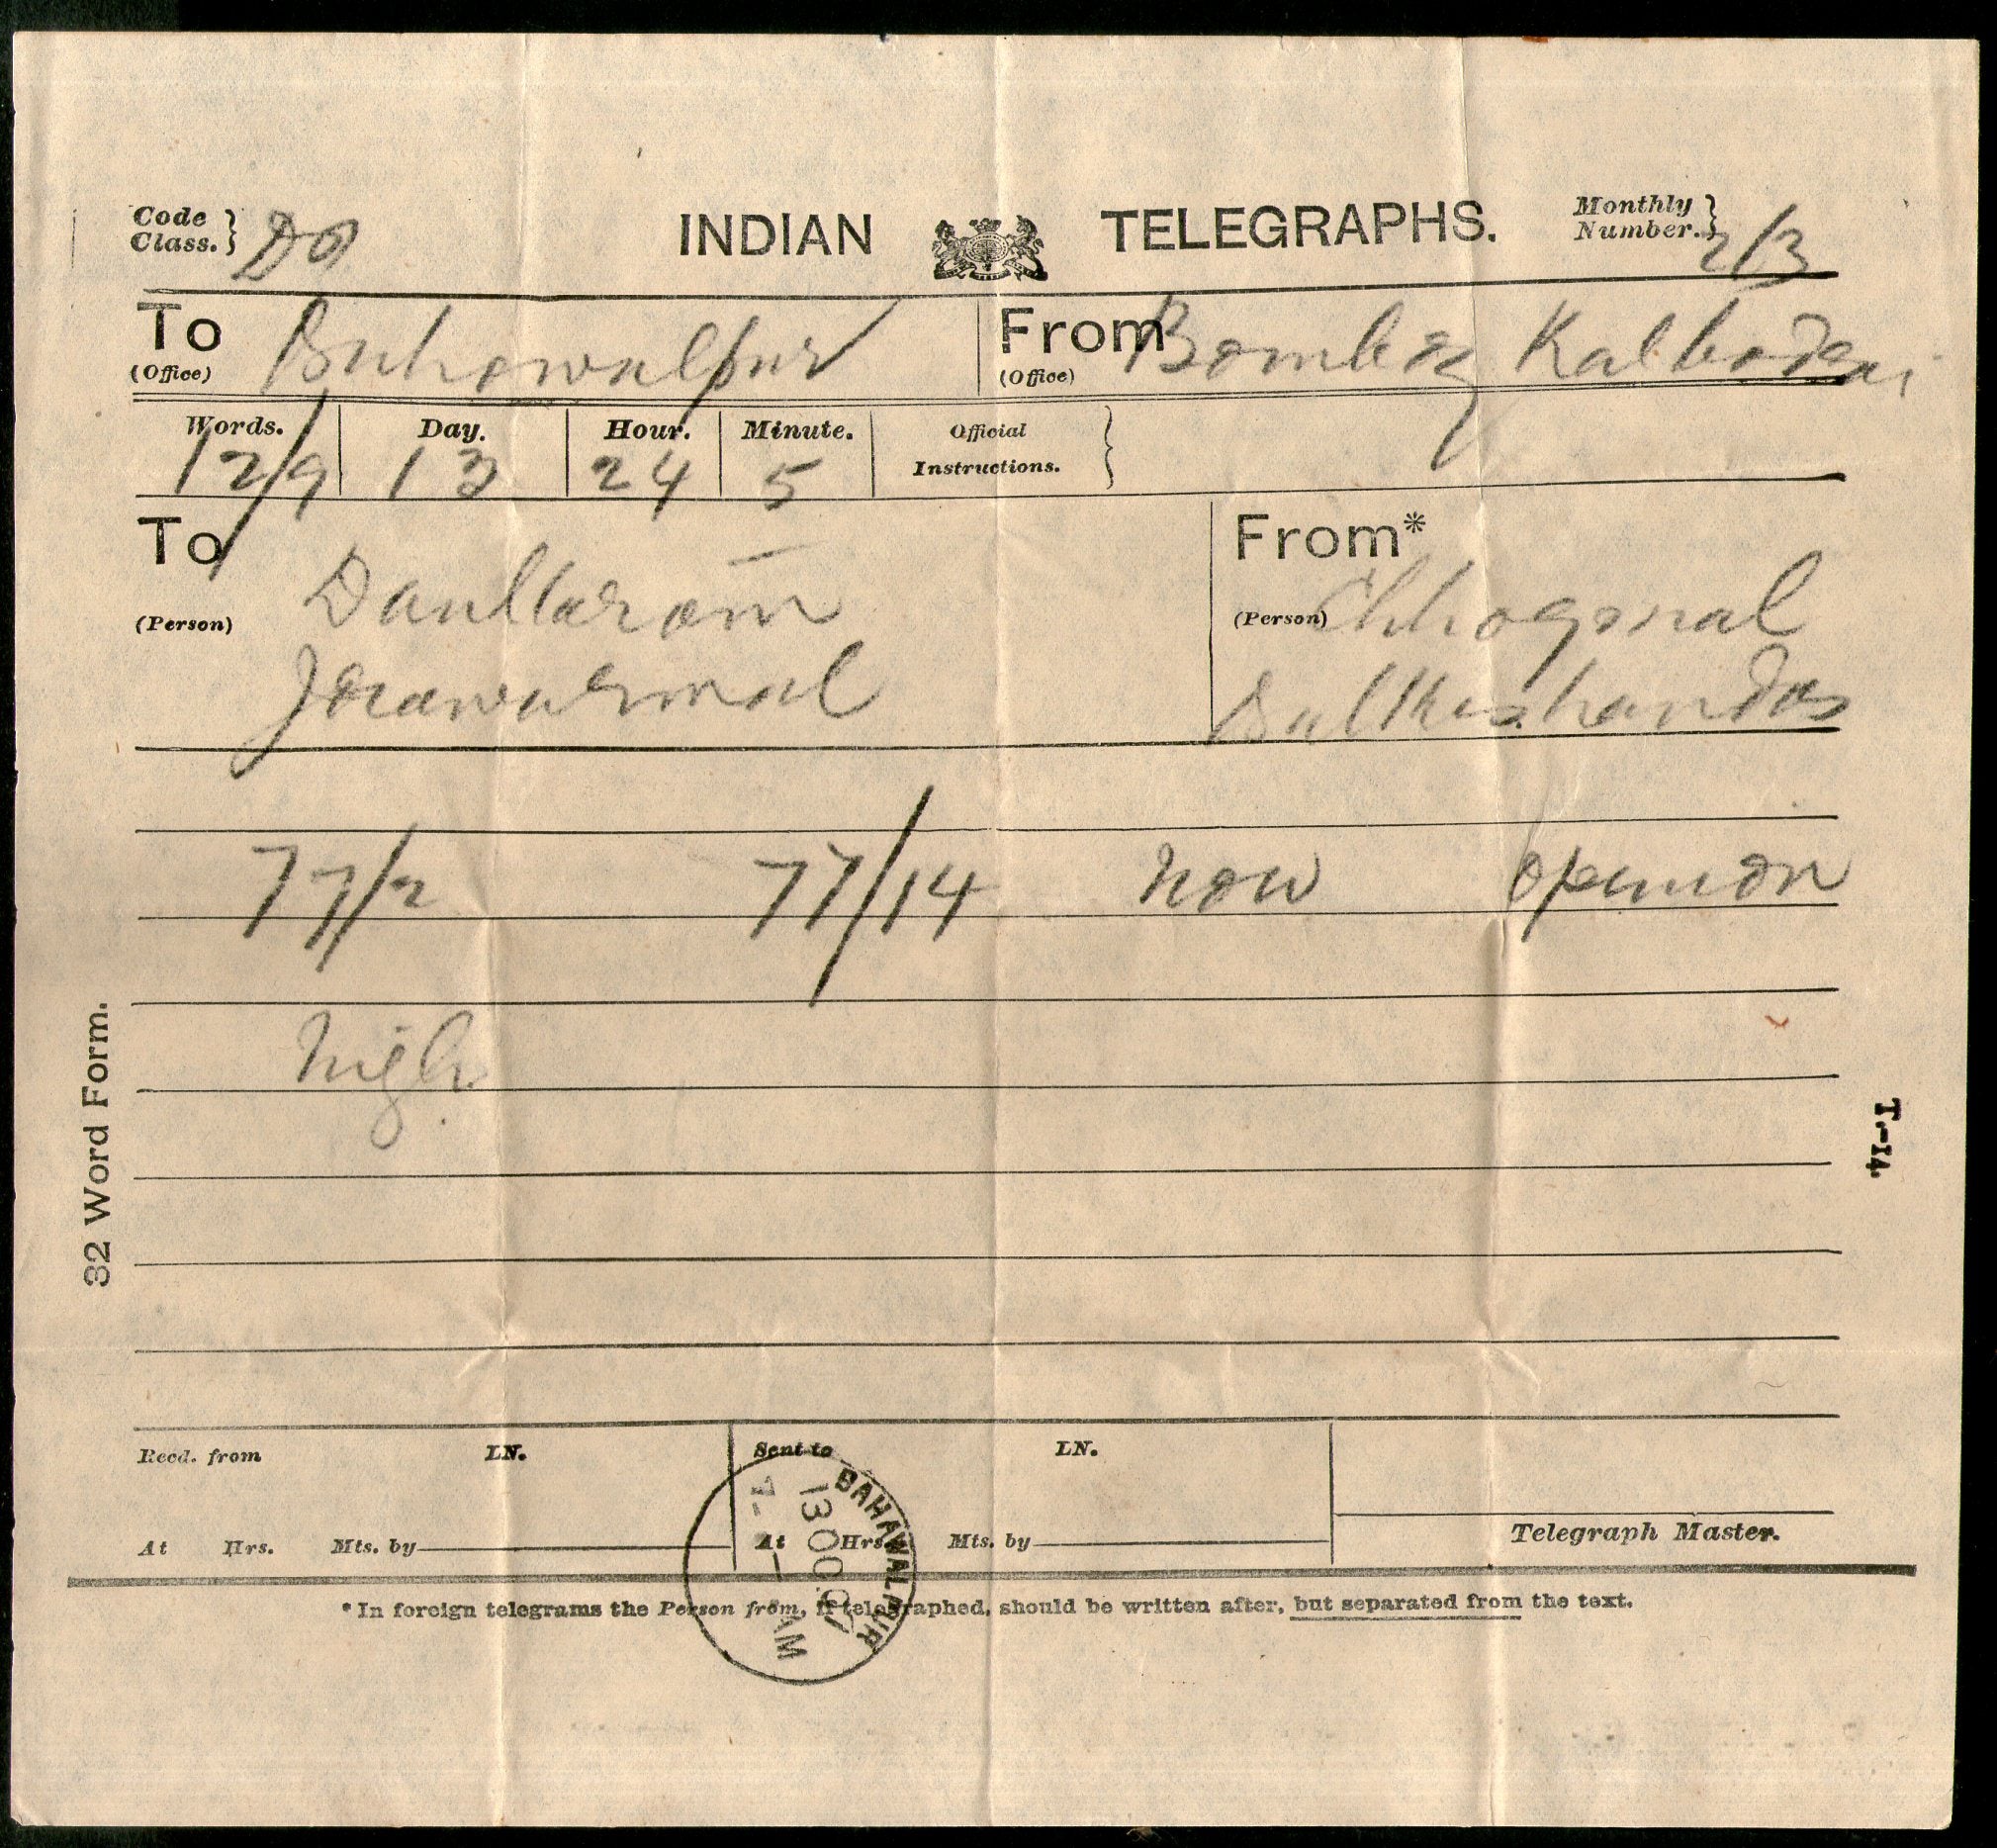 Code Class. } DO
INDIAN TELEGRAPHS.
Monthly Number. } 2/3
To (Office) Buhawalpur
From (Office) Bombay Kalbadevi
Words. Day. Hour. Minute. Official Instructions. }
12/9 13 24 5
To (Person)
Daultaram
Jorawurmal
From* (Person)
Chhogmal
77/2 77/14 now opinion
high
32 Word Form.
T.-14.
Recd. from LN. Sent to LN.
At Hrs. Mts. by At Hrs. Mts. by
Telegraph Master.
BAHAWALPUR
13 OC 07
AM
*In foreign telegrams the Person from, if telegraphed, should be written after, but separated from the text.